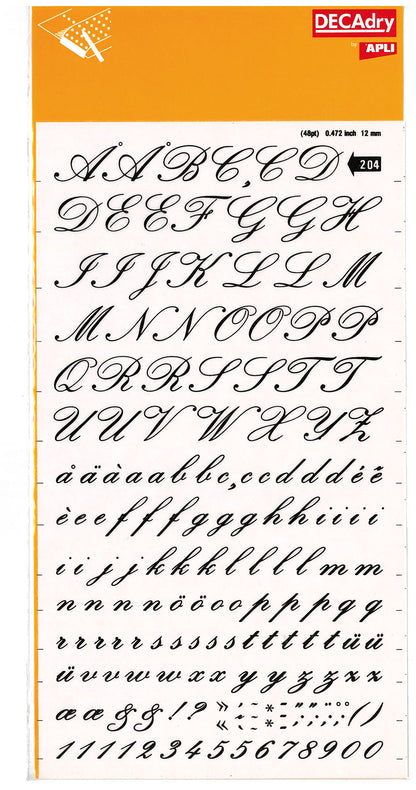 DECAdry
by APLI
(48pt) 0.472 inch 12 mm
Å Å B C ¸ C D 204
D E E F G G H
I I J K L L M
M N N O O P P
Q R R S S T T
U U V W X Y Z
å ä à a a b b c ¸ c c d d d é ê
è e e f f f g g g h h i i i i
i i j j k k k l l l l l m m
n n n n n ö ö o o p p p q q
r r r r r s s s s s t t t t t ü ü
ü v v w w x x y y z z z z
æ æ & & ! ? » ´ ~ * - " " ¨ ° °
« ` ~ * - ; ; : : ( )
1 1 1 1 2 3 4 5 5 6 7 8 9 0 0